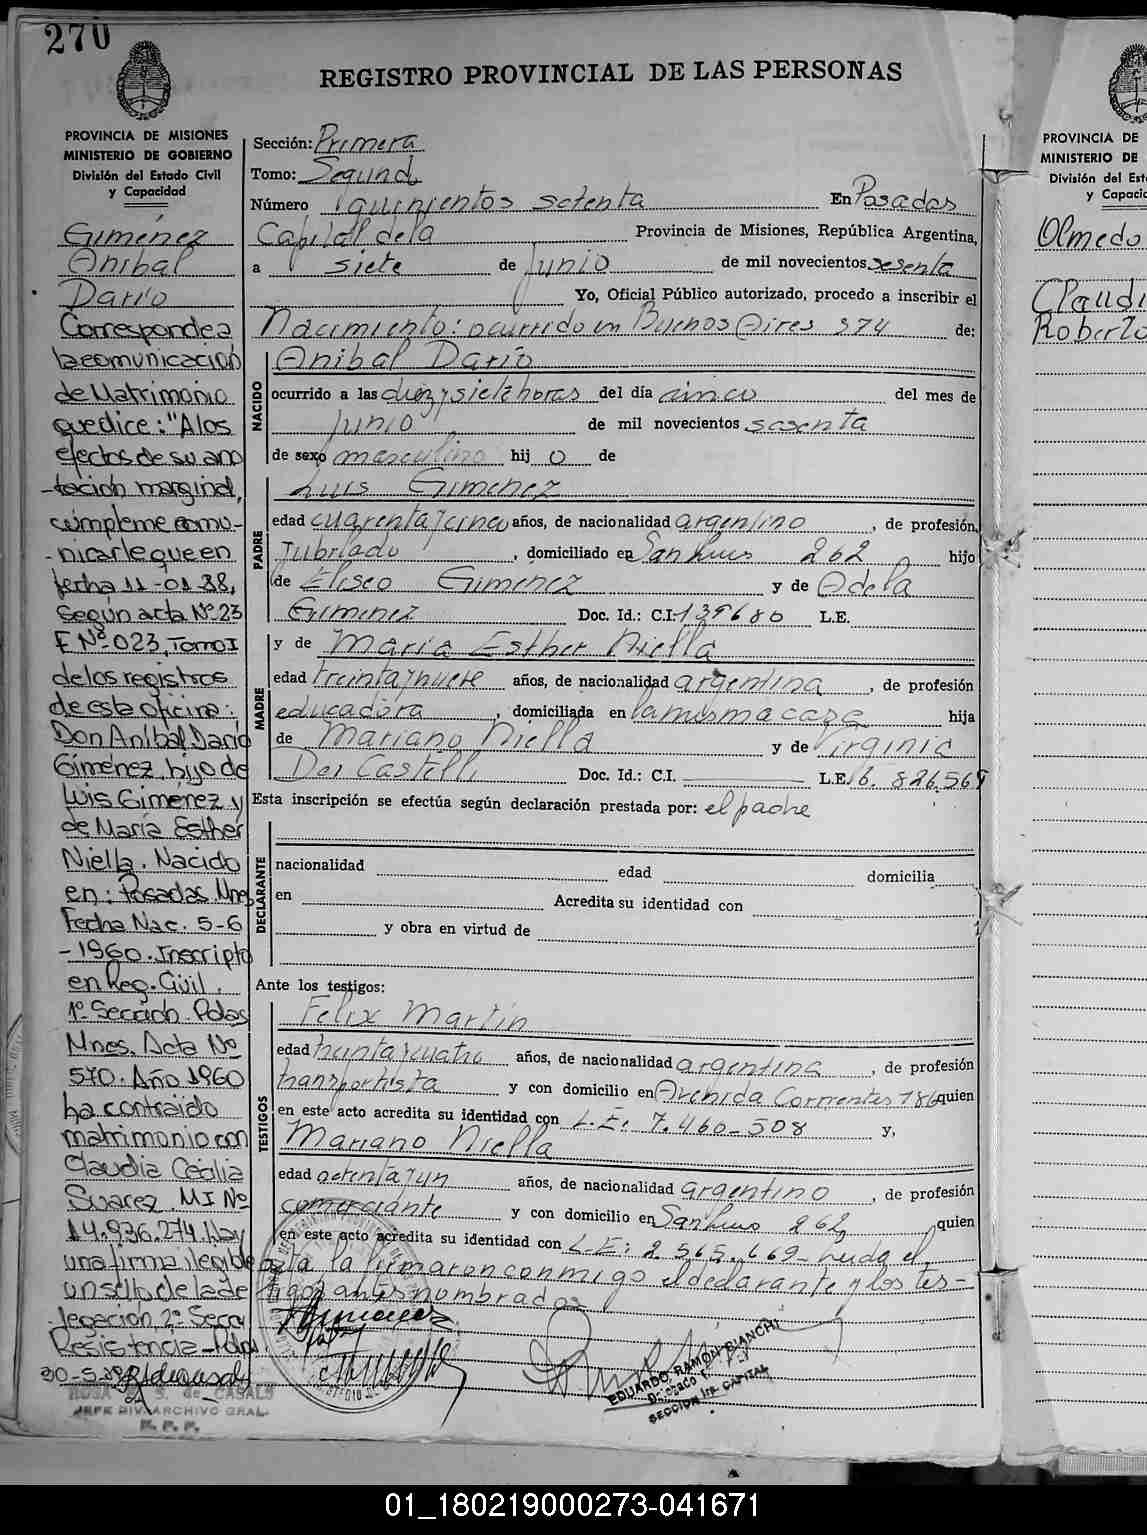 270
REGISTRO PROVINCIAL DE LAS PERSONAS
PROVINCIA DE MISIONES
MINISTERIO DE GOBIERNO
División del Estado Civil
y Capacidad
Giménez
Anibal
Darío
Corresponde a
la comunicación
de Matrimonio
que dice: "A los
efectos de su ano
-tación marginal,
cúmpleme comu-
-nicarle que en
fecha 11-01-88,
según acta Nº 23
F Nº 023, Tomo I
de los registros
de esta oficina:
Don Aníbal Darío
Giménez, hijo de
Luis Giménez y
de María Esther
Niella. Nacido
en: Posadas Mnes
Fecha Nac. 5-6
-1960. Inscripto
en Reg. Civil.
1º Sección Pdas
Mnes. Acta Nº
570. Año 1960
ha contraido
matrimonio con
Claudia Cecilia
Suarez. MI Nº
14.936.274. Hay
una firma ilegible
un sello de la de
legación 2º Secc
Resistencia_Pdas
30-5-
ROSA S. de CASALS
JEFE DIV. ARCHIVO GRAL.
R. P. P.
Sección: Primera
Tomo: Segund
Número quinientos setenta En Posadas
Capital de la Provincia de Misiones, República Argentina,
a siete de Junio de mil novecientos sesenta
Yo, Oficial Público autorizado, procedo a inscribir el
Nacimiento: ocurrido en Buenos Aires 374 de:
NACIDO
Anibal Darío
ocurrido a las diez y siete horas del día cinco del mes de
Junio de mil novecientos sesenta
de sexo masculino hij o de
PADRE
Luis Gimenez
edad cuarenta y cinco años, de nacionalidad argentino, de profesión
Jubilado, domiciliado en San Luis 262 hijo
de Eliseo Gimenez y de Adela
Gimenez Doc. Id.: C.I. 139680 L.E.
MADRE
y de María Esther Niella
edad treinta y nueve años, de nacionalidad argentina, de profesión
educadora, domiciliada en la misma casa hija
de Mariano Niella y de Virginia
Dei Castelli Doc. Id.: C.I. L.E. 6.826.569
Esta inscripción se efectúa según declaración prestada por: el padre
DECLARANTE
nacionalidad edad domicilia
en Acredita su identidad con
y obra en virtud de
Ante los testigos:
TESTIGOS
Felix Martin
edad treinta y cuatro años, de nacionalidad argentina, de profesión
transportista y con domicilio en Avenida Corrientes 186 quien
en este acto acredita su identidad con L.E: 7.460-508 y,
Mariano Niella
edad setenta y un años, de nacionalidad argentino, de profesión
comerciante y con domicilio en San Luis 262 quien
en este acto acredita su identidad con L.E: 2.565.669- Leida el
acta la firmaron conmigo el declarante y los tes-
tigos antes nombrados
EDUARDO RAMON BIANCHI
SECCION 1ra. CAPITAL
PROVINCIA DE
MINISTERIO DE
División del Est
y Capacid
Olmedo
Claudi
Roberto
01_180219000273-041671